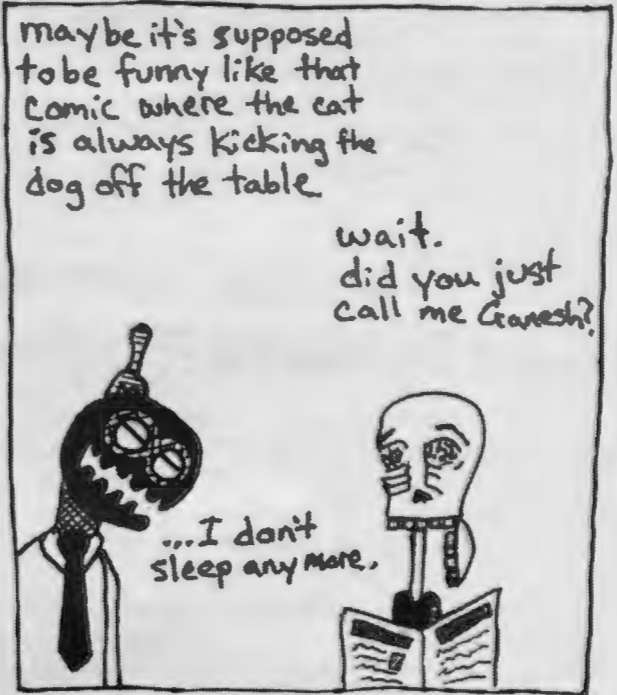 maybe it's supposed
to be funny like that
comic where the cat
is always kicking the
dog off the table
wait.
did you just
call me Ganesh?
...I don't
sleep any more.